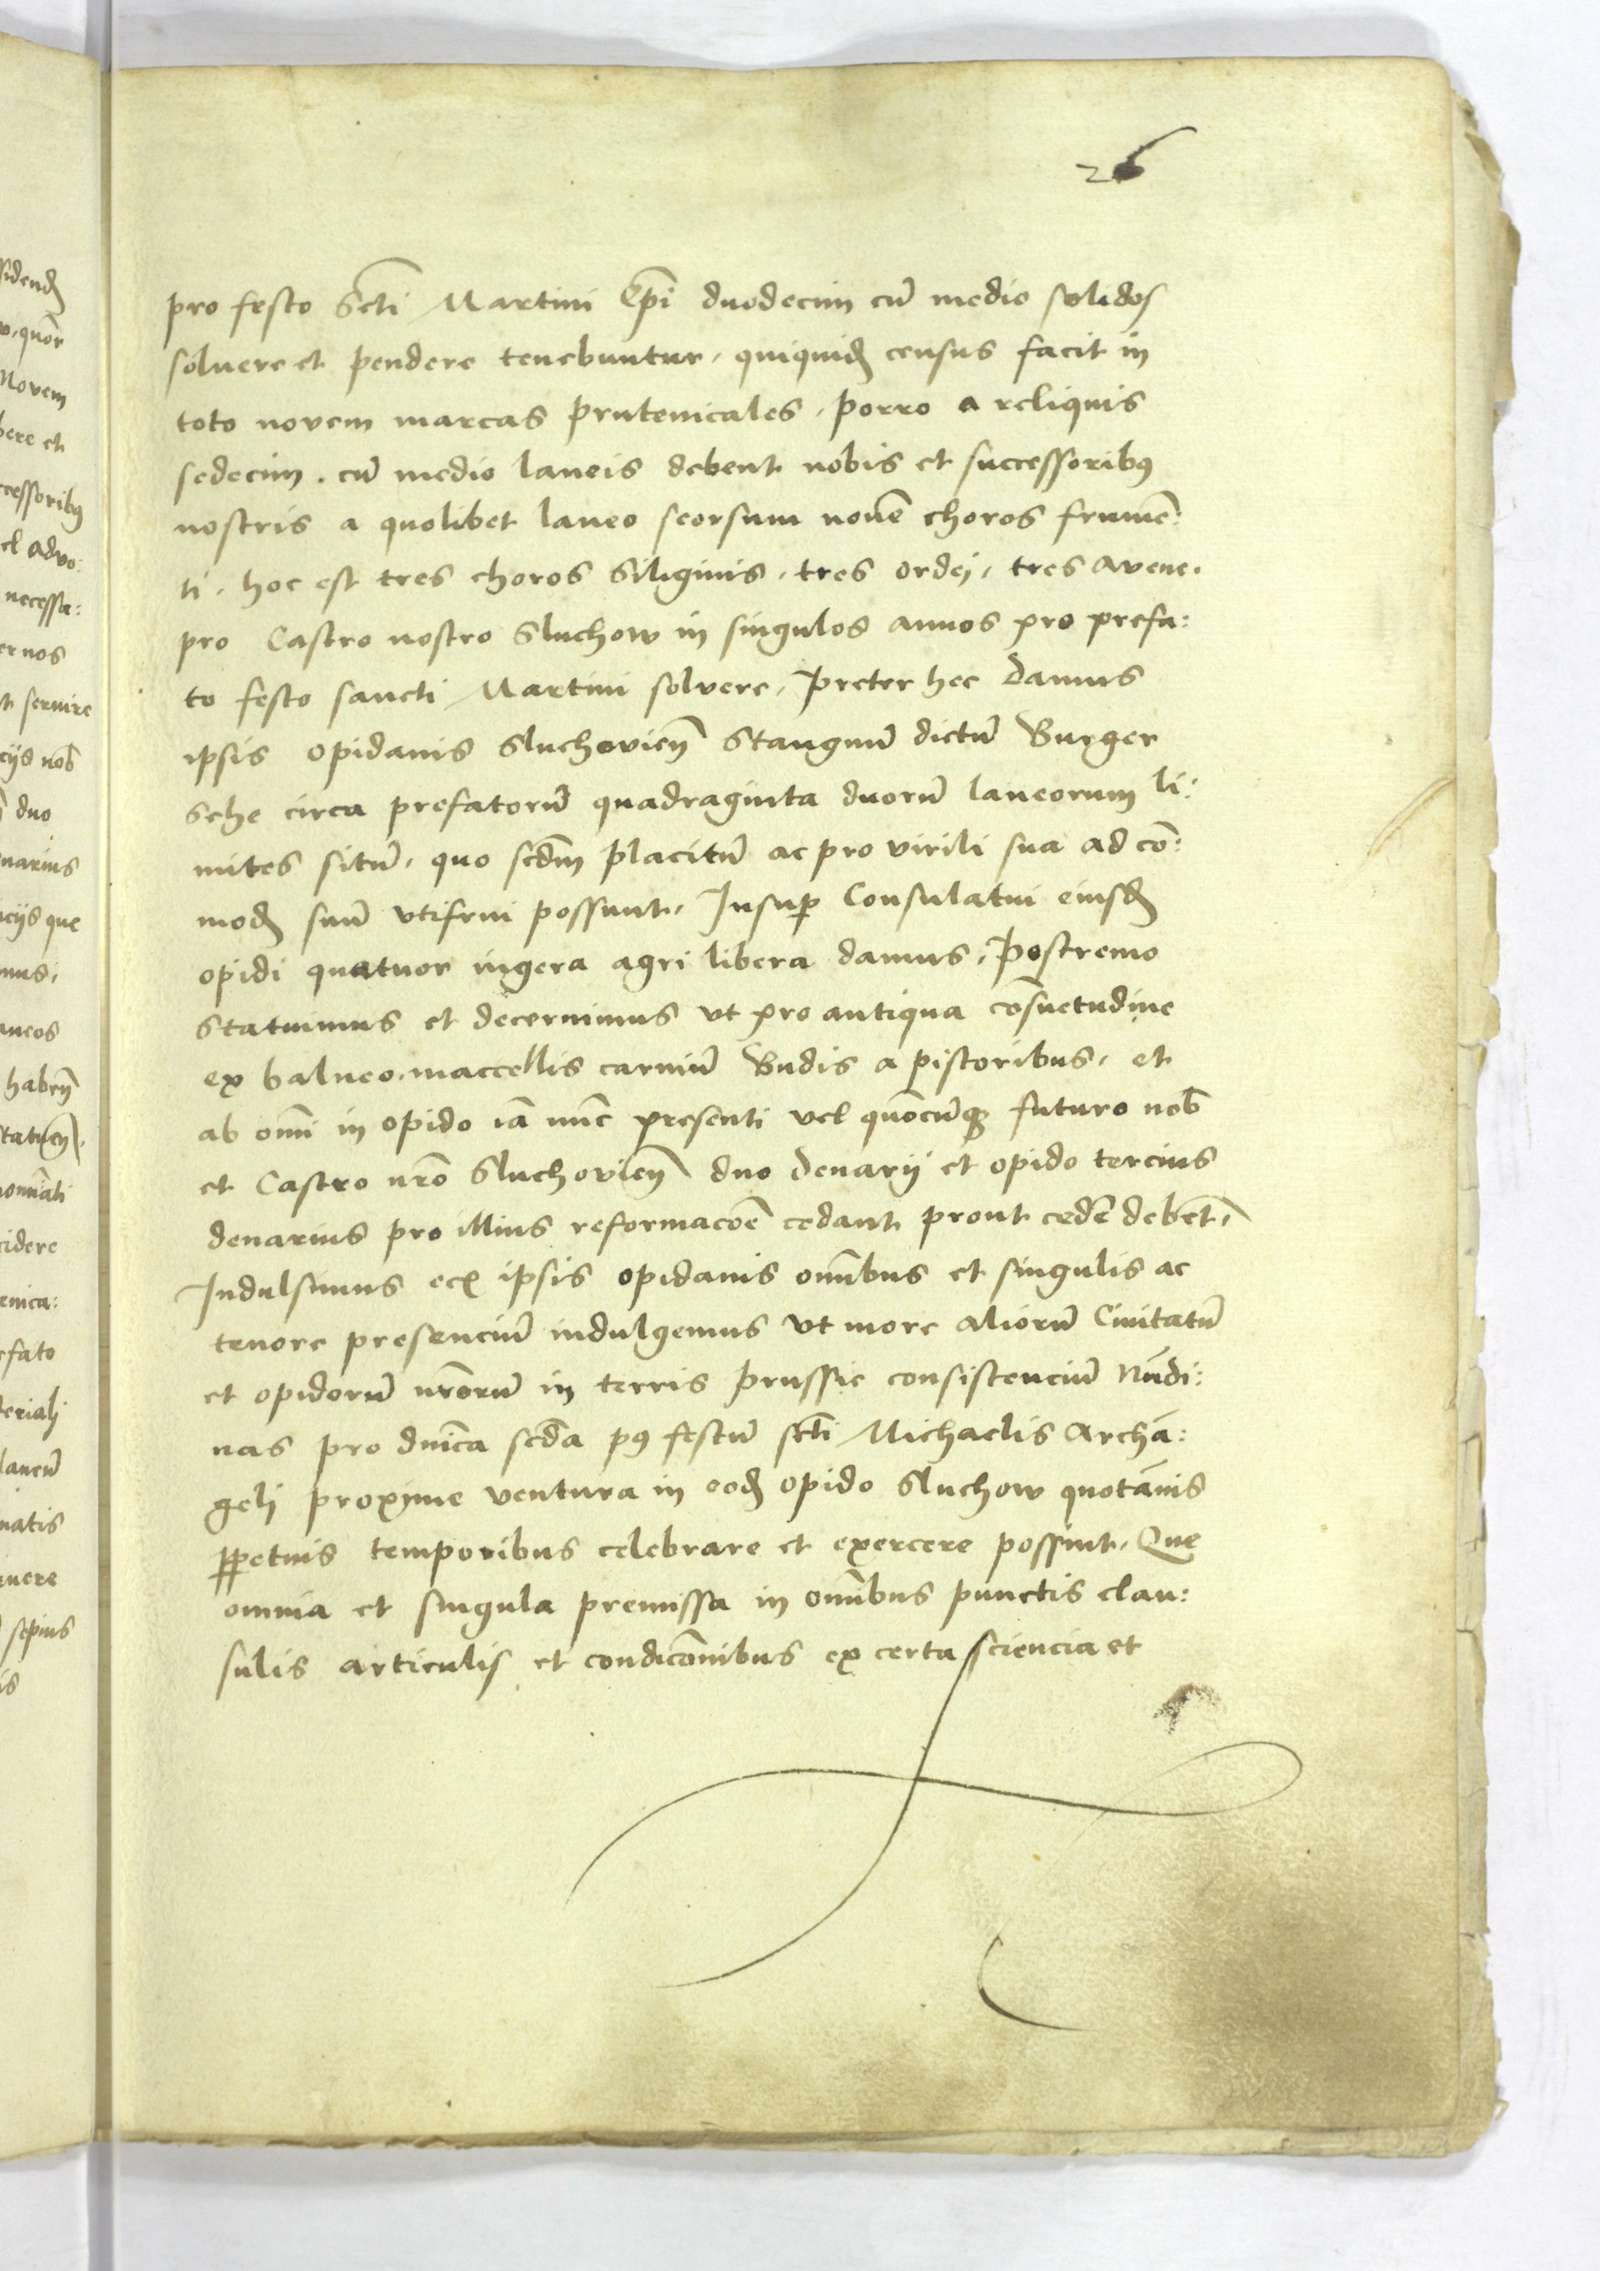 26
pro festo Scti Martini Epi duodecim cu̅ medio solidos
soluere et pendere tenebuntur, quiquid census facit in
toto novem marcas prutenicales, porro a reliquis
sedecim. cu̅ medio laneis debent nobis et successoribus
nostris a quolibet laneo seorsum noue̅ choros frume̅:
ti. hoc est tres choros siliginis, tres ordej, tres avene.
pro Castro nostro Sluchow in singulos annos pro prefa:
to festo sancti Martini solvere, Preter hec damus
ipsis opidanis Sluchovien̅ Stangnu̅ dictu̅ Burger
Sehe circa prefatoru̅ quadraginta duoru̅ laneorum li:
mites situ̅, quo scdm placitu̅ ac pro virili sua ad co̅:
mod̅ suu̅ vtifrui possunt, Insup Consulatui eiusd̅
opidi quatuor iugera agri libera damus, Postremo
Statuimus et decernimus vt pro antiqua co̅suetudine
ex balneo. maccellis carniu̅ Budis a pistoribus, et
ab omi̅ in opido ia̅ nu̅c presenti vel quo̅cu̅q̅ futuro nob̅
et Castro nr̅o Sluchovien̅ duo denarij et opido tercius
denarius pro illius reformacoe̅ cedant prout cede̅ debe̅t,
Indulsimus ec̅ ipsis opidanis omi̅bus et singulis ac
tenore presenciu̅ indulgemus vt more alioru̅ Ciuitatu̅
et opidoru̅ nr̅oru̅ in terris Prussie consistenciu̅ Nu̅di:
nas pro dni̅ca scda̅ p9 festu̅ scti Michaelis Archa̅:
gelj proxime ventura in eod̅ opido Sluchow quota̅nis
ppetuis temporibus celebrare et exercere possint, Que
omnia et singula premissa in omi̅bus punctis clau:
sulis articulis et condico̅nibus ex certa sciencia et